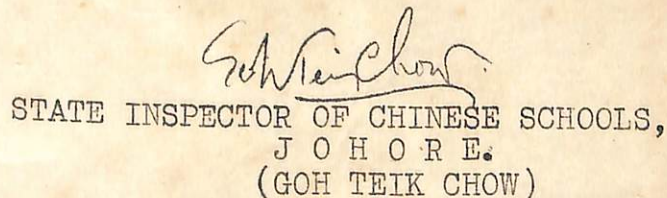 Goh Teik Chow.
STATE INSPECTOR OF CHINESE SCHOOLS,
J O H O R E.
(GOH TEIK CHOW)